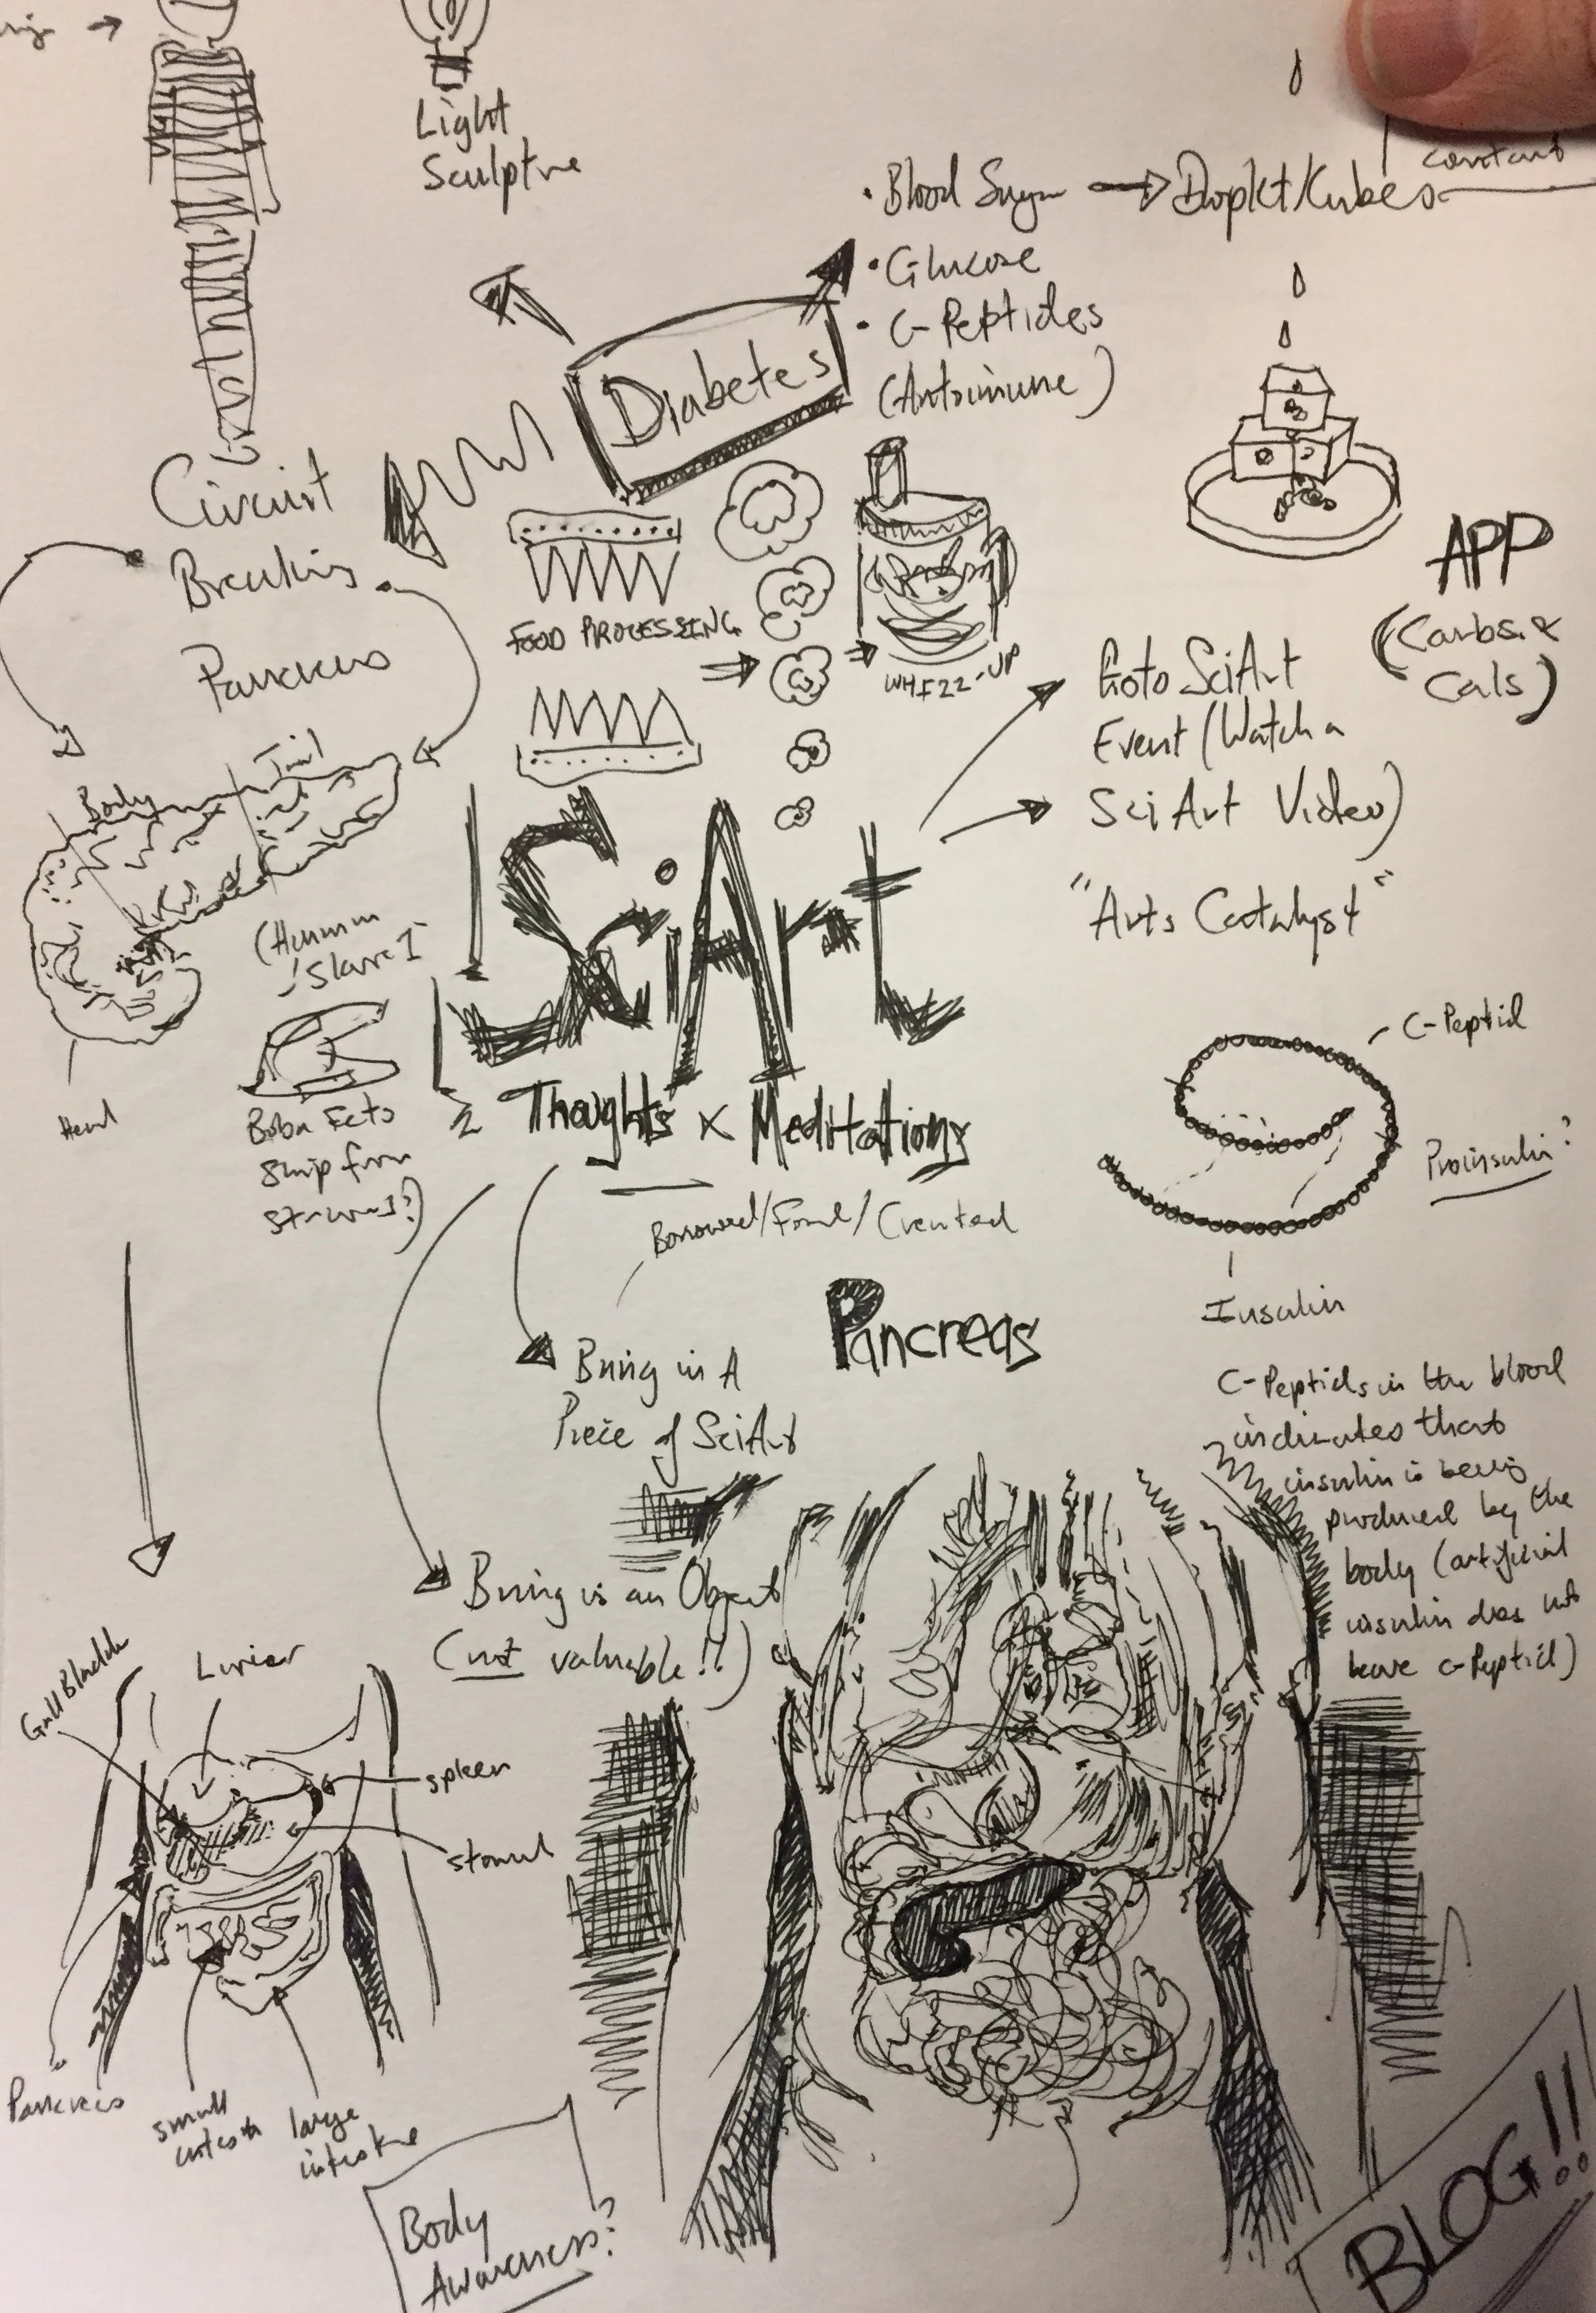 Light
Sculptre
• Blood Sugar → Droplet/Kubes
constant
• Glucose
• C-Peptides
(Autoimmune)
Diabetes
Circuit
Breaking
Pancreas
FOOD PROCESSING
WHIZZ-UP
APP
(Carbs &
Cals)
Goto SciArt
Event (Watch a
SciArt Video)
"Arts Catalyst"
Body
Tail
Head
(Hmmm
Slave I
Boba Fets
ship from
starwars?)
SciArt
Thoughts x Meditations
Borrowed/Found/Created
C-Peptid
Proinsulin?
Insulin
Pancreas
Bring in A
Piece of SciArt
Bring in an Object
(not valuable!!)
C-Peptids in the blood
indicates that
insulin is being
produced by the
body (artificial
insulin does not
leave c-Peptid)
Gall Bladder
Livier
spleen
stomach
Pancreas
small
intestine
large
intestine
Body
Awareness?
BLOG!!